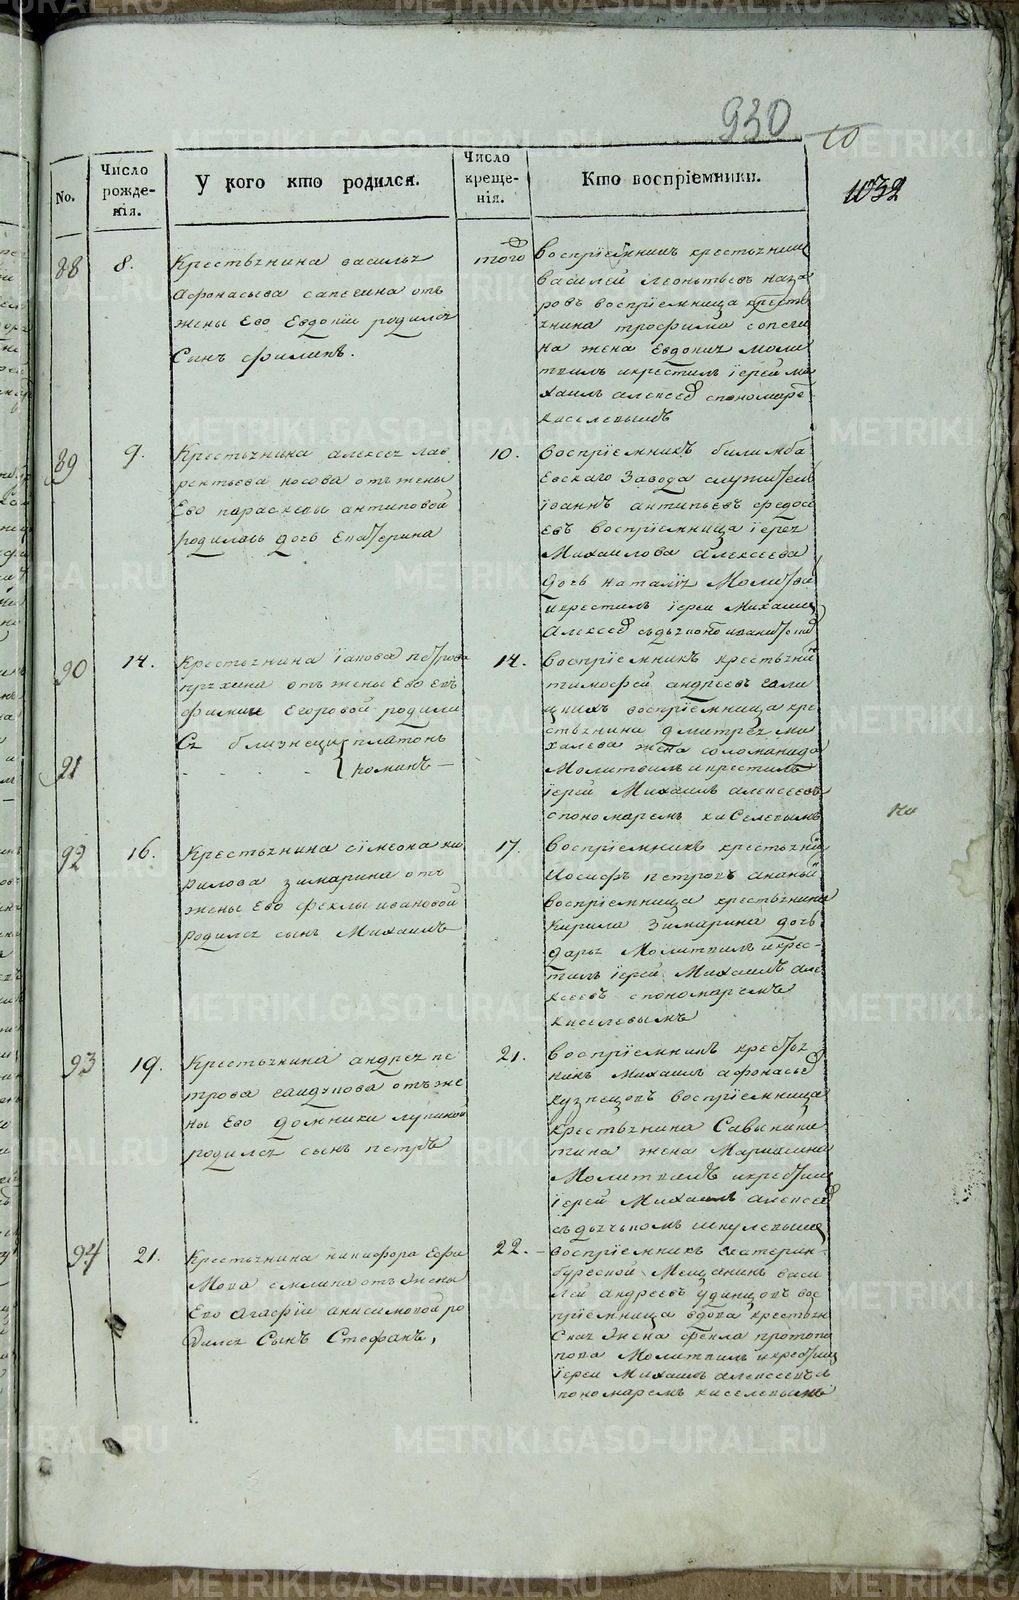 930
10
1032
No.
Число рожде-нія.
У кого кто родился.
Число креще-нія.
Кто воспріемники.
88
8.
Крестьянина василья
Афонасьева сапегина отъ
жены Его Евдокіи родился
Сынъ филипъ.
того
Воспріемникъ крестьянинъ
василей леонтьевъ наза
ровъ воспріемница кресть
янина трофима сопеги
на жена Евдокия моли
твилъ икрестилъ іерей ми
хаилъ алексеев спономаре
киселевымъ
89
9.
Крестьянина алексея лав
рентьева носова отъ жены
Его параскевы антиповой
родилась дочь Екатерина
10.
Воспріемникъ билимба
евскаго завода служитель
іоаннъ антипьевъ федосе
евъ воспріемница іерея
Михаилова Алексеева
дочь наталія Молитвил
икрестилъ іереи Михаилъ
Алексеев
90
14.
Крестьянина іакова петрова
пряхина отъ жены Его Евъ
фимии Егоровой родили
Сь близнецы платонъ
91
коминъ
14.
Воспріемникъ крестьянин
тимофей андреевъ гали
цкихъ воспріемница кре
стьянина дмитрея ми
халева жена соломанида
Молитвилъ и крестилъ
іерей Михаилъ Алексеевъ
спономаремъ киселевымъ
92
16.
Крестьянина сімеона ки
рилова зимарина отъ
жены Его феклы ивановой
родился сынъ Михаилъ
17.
Воспріемникъ крестьянин
Иосифъ петровъ ананьин
воспріемница крестьянина
Кирила Зимарина дочь
дарья Молитвилъ икрес-
тилъ іерей Михаилъ але
ксеевъ спономаремъ
киселевымъ
93
19.
Крестьянина андрея пе
трова отъ же
ны Его домники лупиной
родился сынъ петръ
21.
Воспріемникъ кресть
нинъ Михаилъ афонасьев
кузнецовъ воспріемница
крестьянина Савы ники
тина жена Мариамна
Молитвилъ икрестилъ
іерей Михаилъ алексеев
съдьячкомъ
94
21.
Крестьянина никифора Ефи
Мова смлина отъ Жены
Его Агафіи анисимовой ро
дился Сынъ Стефанъ,
22.
воспріемникъ Екатерин-
бургской Мещанинъ васи
лей андреевъ удинцовъ вос
пріемница вдова крестьян
Ская Жена фекла протопо
пова Молитвилъ икрестилъ
іереи Михаилъ алексеевъ с
пономаремъ киселевымъ
METRIKI.GASO-URAL.RU